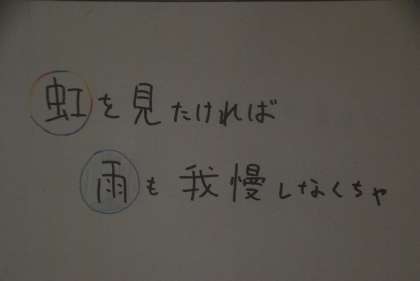 虹を見たければ
雨も我慢しなくちゃ